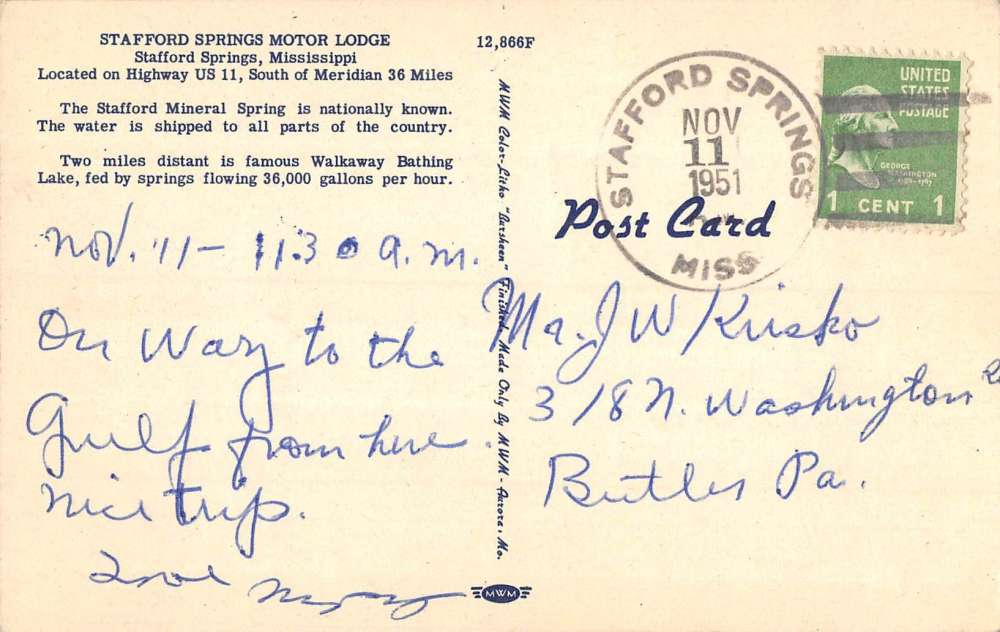 STAFFORD SPRINGS MOTOR LODGE
Stafford Springs, Mississippi
Located on Highway US 11, South of Meridian 36 Miles
The Stafford Mineral Spring is nationally known.
The water is shipped to all parts of the country.
Two miles distant is famous Walkaway Bathing
Lake, fed by springs flowing 36,000 gallons per hour.
Nov. 11 - 11:30 a.m.
On Way to the
Gulf from here.
Nice trip.
Love
12,866F
MWM Color-Litho "Barsheen" Finished. Made Only By MWM - Aurora, Mo.
MWM
STAFFORD SPRINGS
NOV
11
1951
MISS
UNITED
STATES
POSTAGE
GEORGE
WASHINGTON
1 CENT 1
Post Card
Mr. J W Krisko
318 N. Washington
Butler Pa.